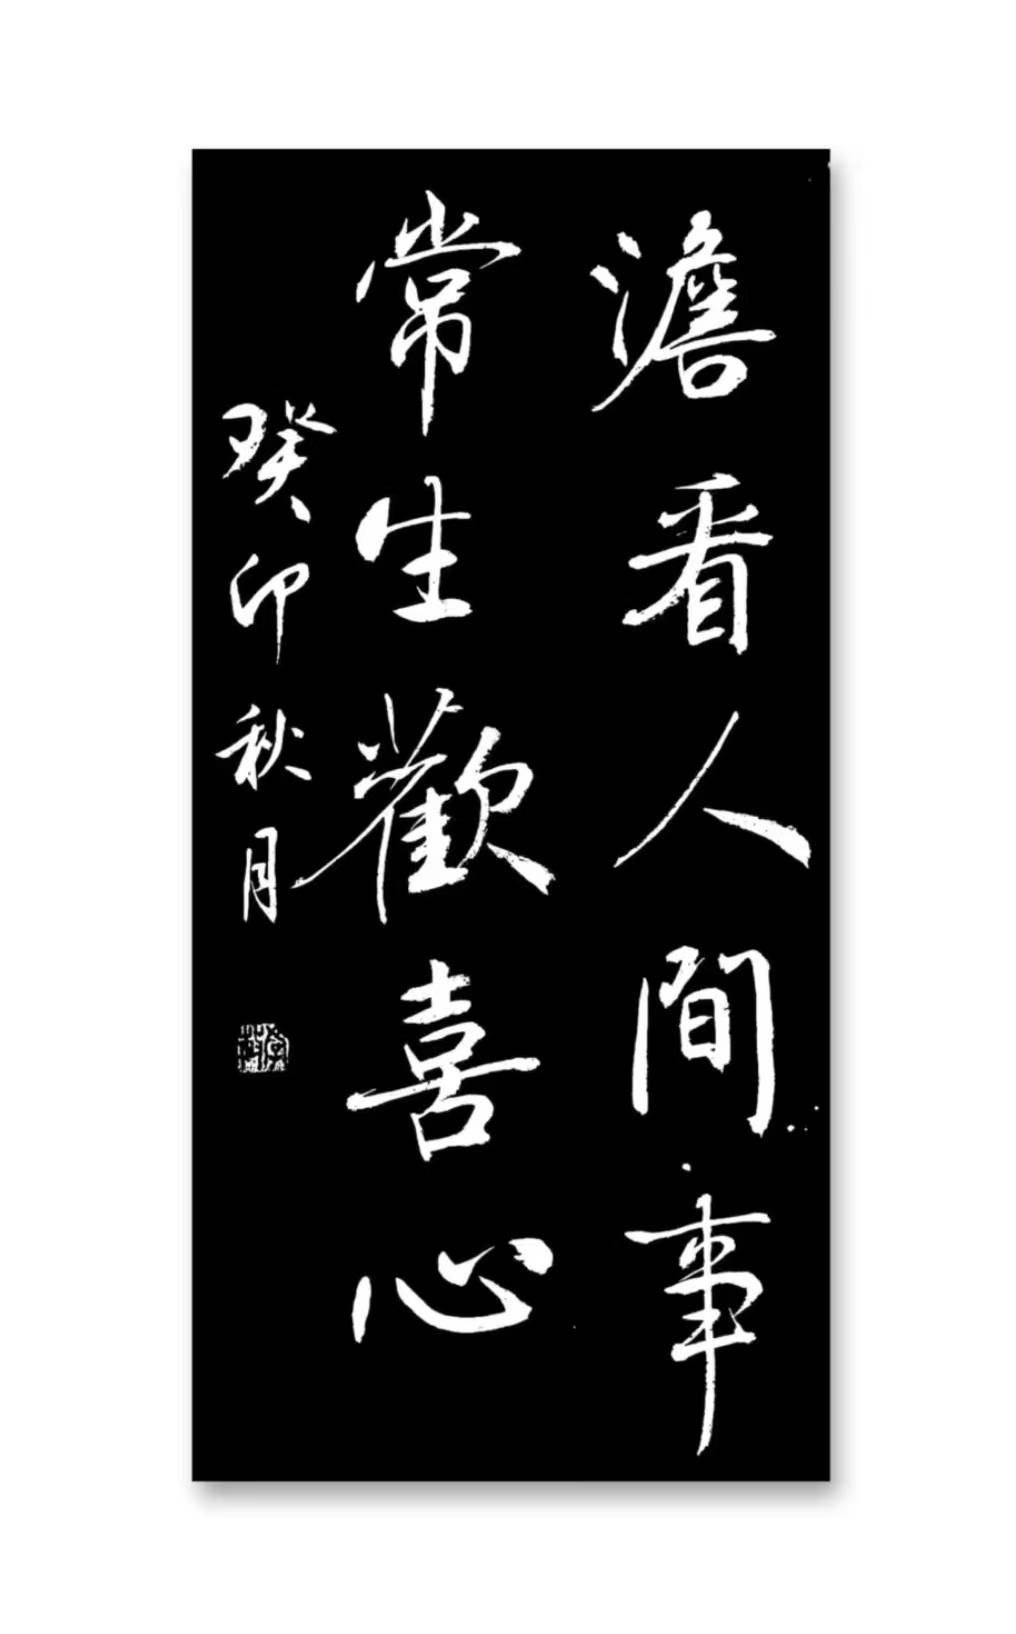 澹看人間事
常生歡喜心
癸卯秋月